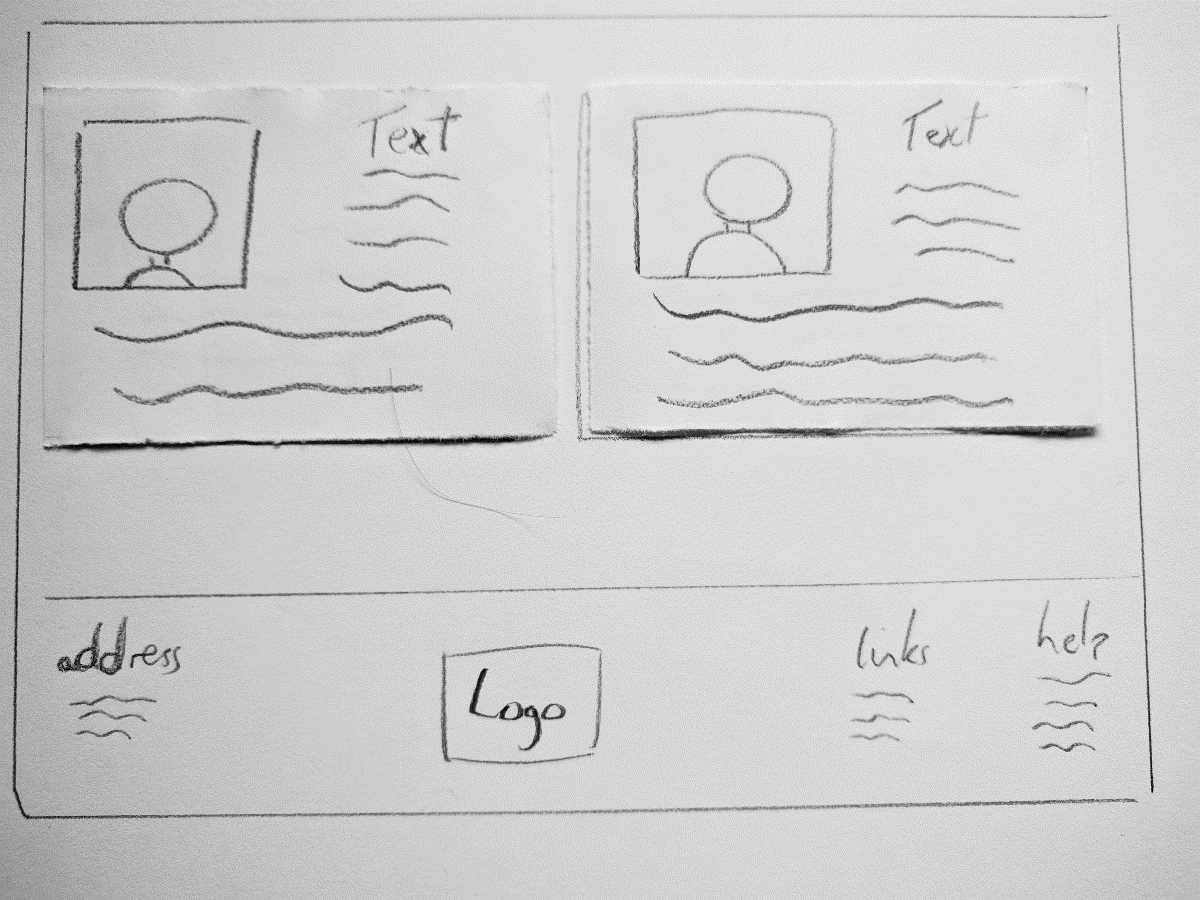 Text
Text
address
Logo
links
help